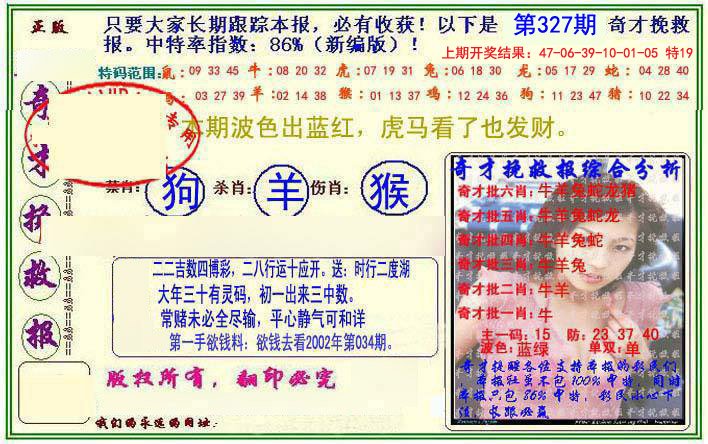 正版
只要大家长期跟踪本报，必有收获！以下是 第327期 奇才挽救
报。中特率指数：86%（新编版）！
上期开奖结果：47-06-39-10-01-05 特19
特码范围：鼠：09 33 45 牛：08 20 32 虎：07 19 31 兔：06 18 30 龙：05 17 29 蛇：04 28 40
03 27 39 羊：02 14 38 猴：01 13 37 鸡：12 24 36 狗：11 23 47 猪：10 22 34
专用
本期波色出蓝红，虎马看了也发财。
奇
才
救
报
禁肖：狗 杀肖：羊 伤肖：猴
二二吉数四博彩，二八行运十应开。送：时行二度湖
大年三十有灵码，初一出来三中数。
常赌未必全尽输，平心静气可和详
第一手欲钱料：欲钱去看2002年第034期。
版权所有，翻印必究
我们的永远的网址：
奇才挽救报综合分析
奇才批六肖：牛羊兔蛇龙猪
奇才批五肖：牛羊兔蛇龙
奇才批四肖：牛羊兔蛇
奇才批三肖：牛羊兔
奇才批二肖：牛羊
奇才批一肖：牛
主一码：15 防：23 37 40
波色：蓝绿 单双：单
奇才提醒各位支持本报的彩民们
，本报并不包100%中特，同时
本报只包86%中特，彩民小心下
注，长跟必赢